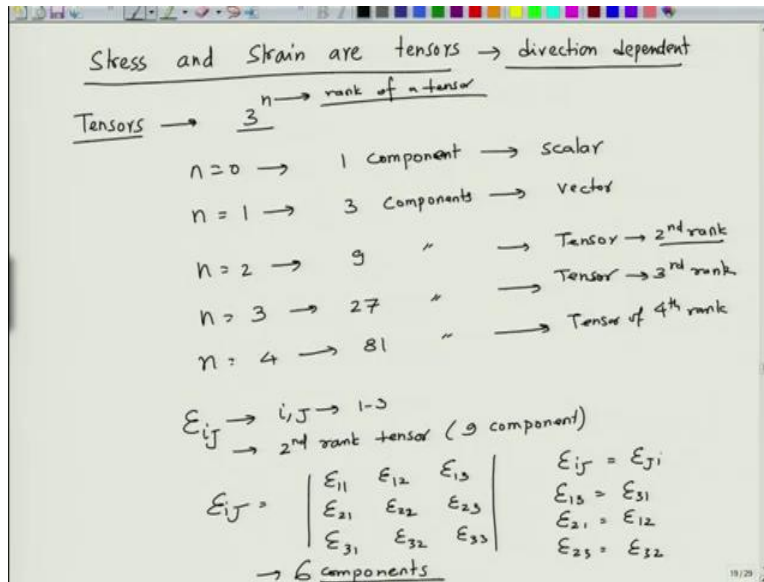 Stress and Strain are tensors → direction dependent
Tensors → 3^n → rank of a tensor
n = 0 → 1 component → scalar
n = 1 → 3 components → vector
n = 2 → 9 〃 → Tensor → 2nd rank
n = 3 → 27 〃 → Tensor → 3rd rank
n = 4 → 81 〃 → Tensor of 4th rank
εij → i, j → 1-3
→ 2nd rank tensor (9 component)
εij = | ε11 ε12 ε13 | εij = εji
| ε21 ε22 ε23 | ε13 = ε31
| ε31 ε32 ε33 | ε21 = ε12
ε23 = ε32
→ 6 components
19/29